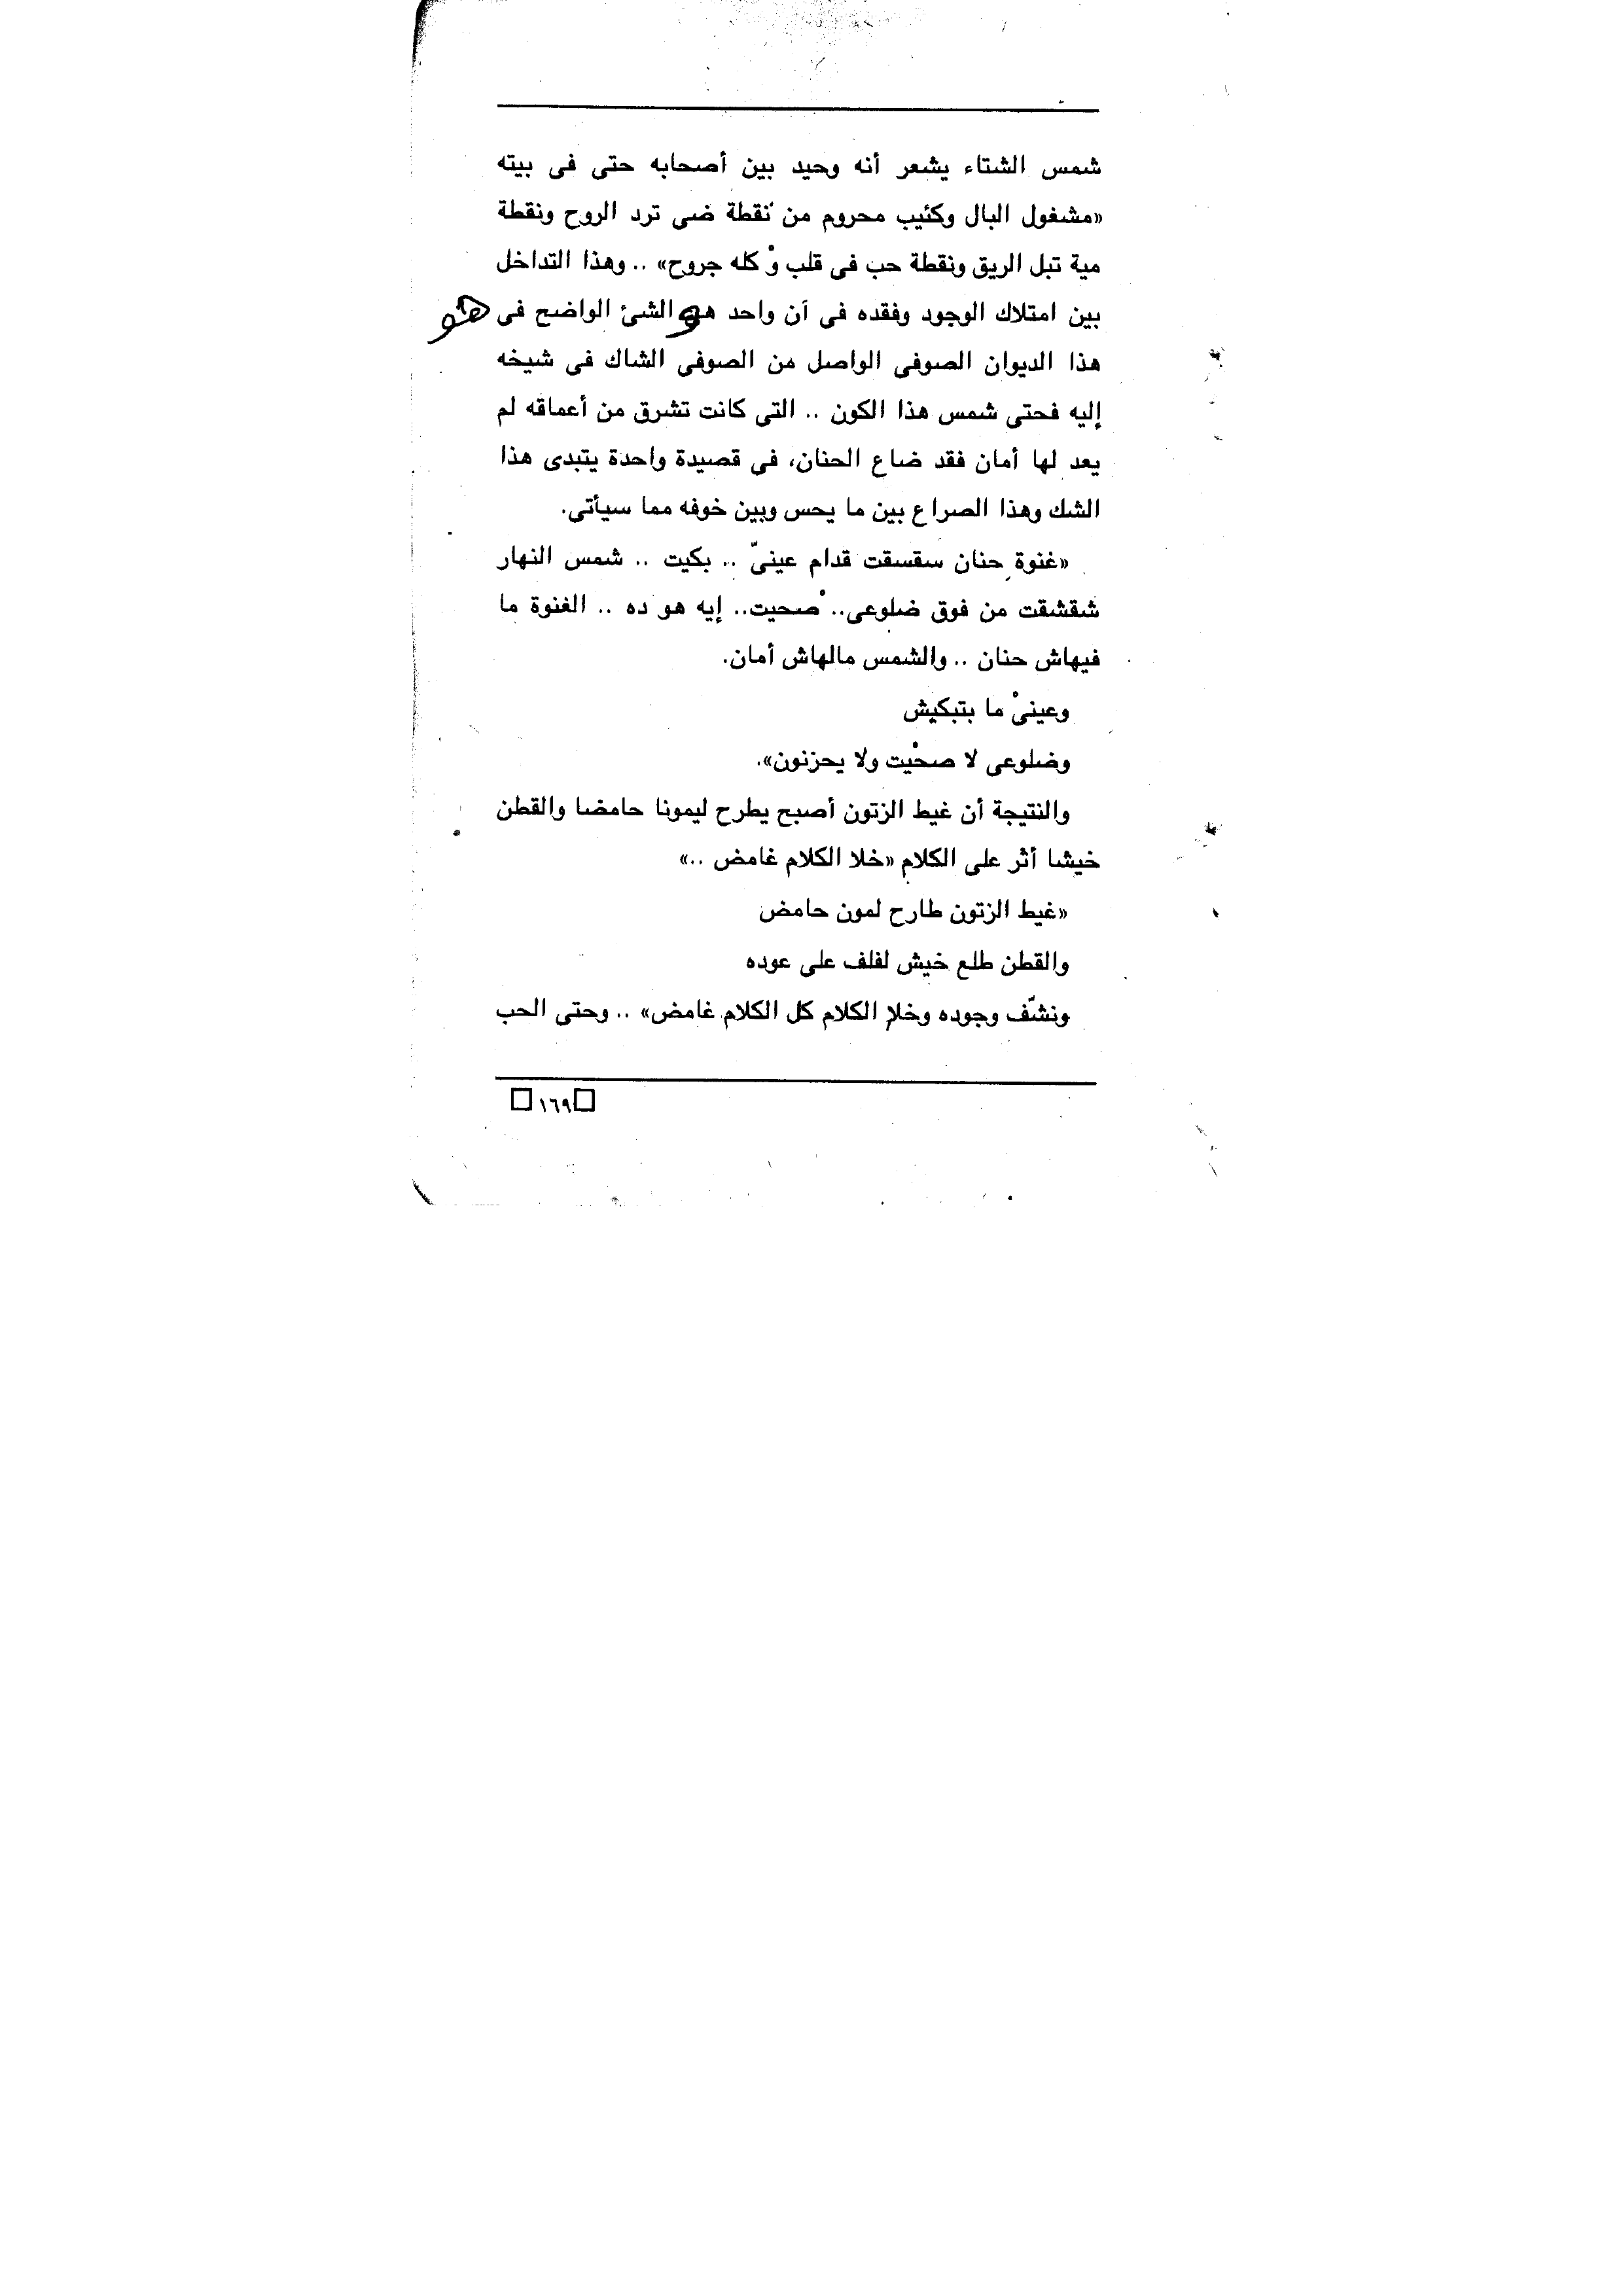 شمس الشتاء يشعر أنه وحيد بين أصحابه حتى فى بيته
«مشغول البال وكئيب محروم من نقطة ضى ترد الروح ونقطة
مية تبل الريق ونقطة حب فى قلب وْ كله جروح» .. وهذا التداخل
بين امتلاك الوجود وفقده فى آن واحد هو الشئ الواضح فى هو
هذا الديوان الصوفى الواصل من الصوفى الشاك فى شيخه
إليه فحتى شمس هذا الكون .. التى كانت تشرق من أعماقه لم
يعد لها أمان فقد ضاع الحنان، فى قصيدة واحدة يتبدى هذا
الشك وهذا الصراع بين ما يحس وبين خوفه مما سيأتى.
«غنوة حنان سقسقت قدام عينىّ .. بكيت .. شمس النهار
شقشقت من فوق ضلوعى.. صحيت.. إيه هو ده .. الغنوة ما
فيهاش حنان .. والشمس مالهاش أمان.
وعينىْ ما بتبكيش
وضلوعى لا صحْيت ولا يحزنون».
والنتيجة أن غيط الزتون أصبح يطرح ليمونا حامضا والقطن
خيشا أثر على الكلام «خلا الكلام غامض ..»
«غيط الزتون طارح لمون حامض
والقطن طلع خيش لفلف على عوده
ونشّف وجوده وخلا الكلام كل الكلام غامض» .. وحتى الحب
١٦٩